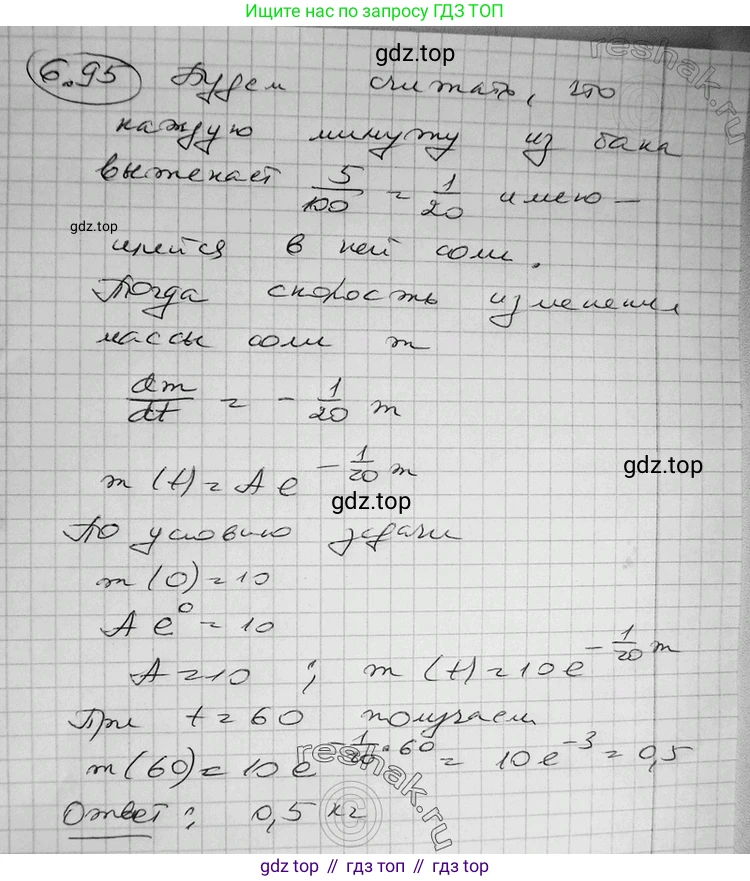 Ищите нас по запросу ГДЗ ТОП
6.95 Будем считать, что
gdz.top
каждую минуту из бака
вытекает 5/100 = 1/20 имею-
gdz.top
щейся в ней соли.
Тогда скорость изменения
массы соли m
dm/dt = - 1/20 m
m(t) = A e^{- 1/20 m}
gdz.top
gdz.top
По условию задачи
m(0) = 10
A e^0 = 10
A = 10 ; m(t) = 10 e^{- 1/20 m}
При t = 60 получаем
m(60) = 10 e^{- 1/20 · 60} = 10 e^{-3} = 0,5
Ответ: 0,5 кг
reshak.ru
reshak.ru
gdz.top // гдз топ // gdz.top